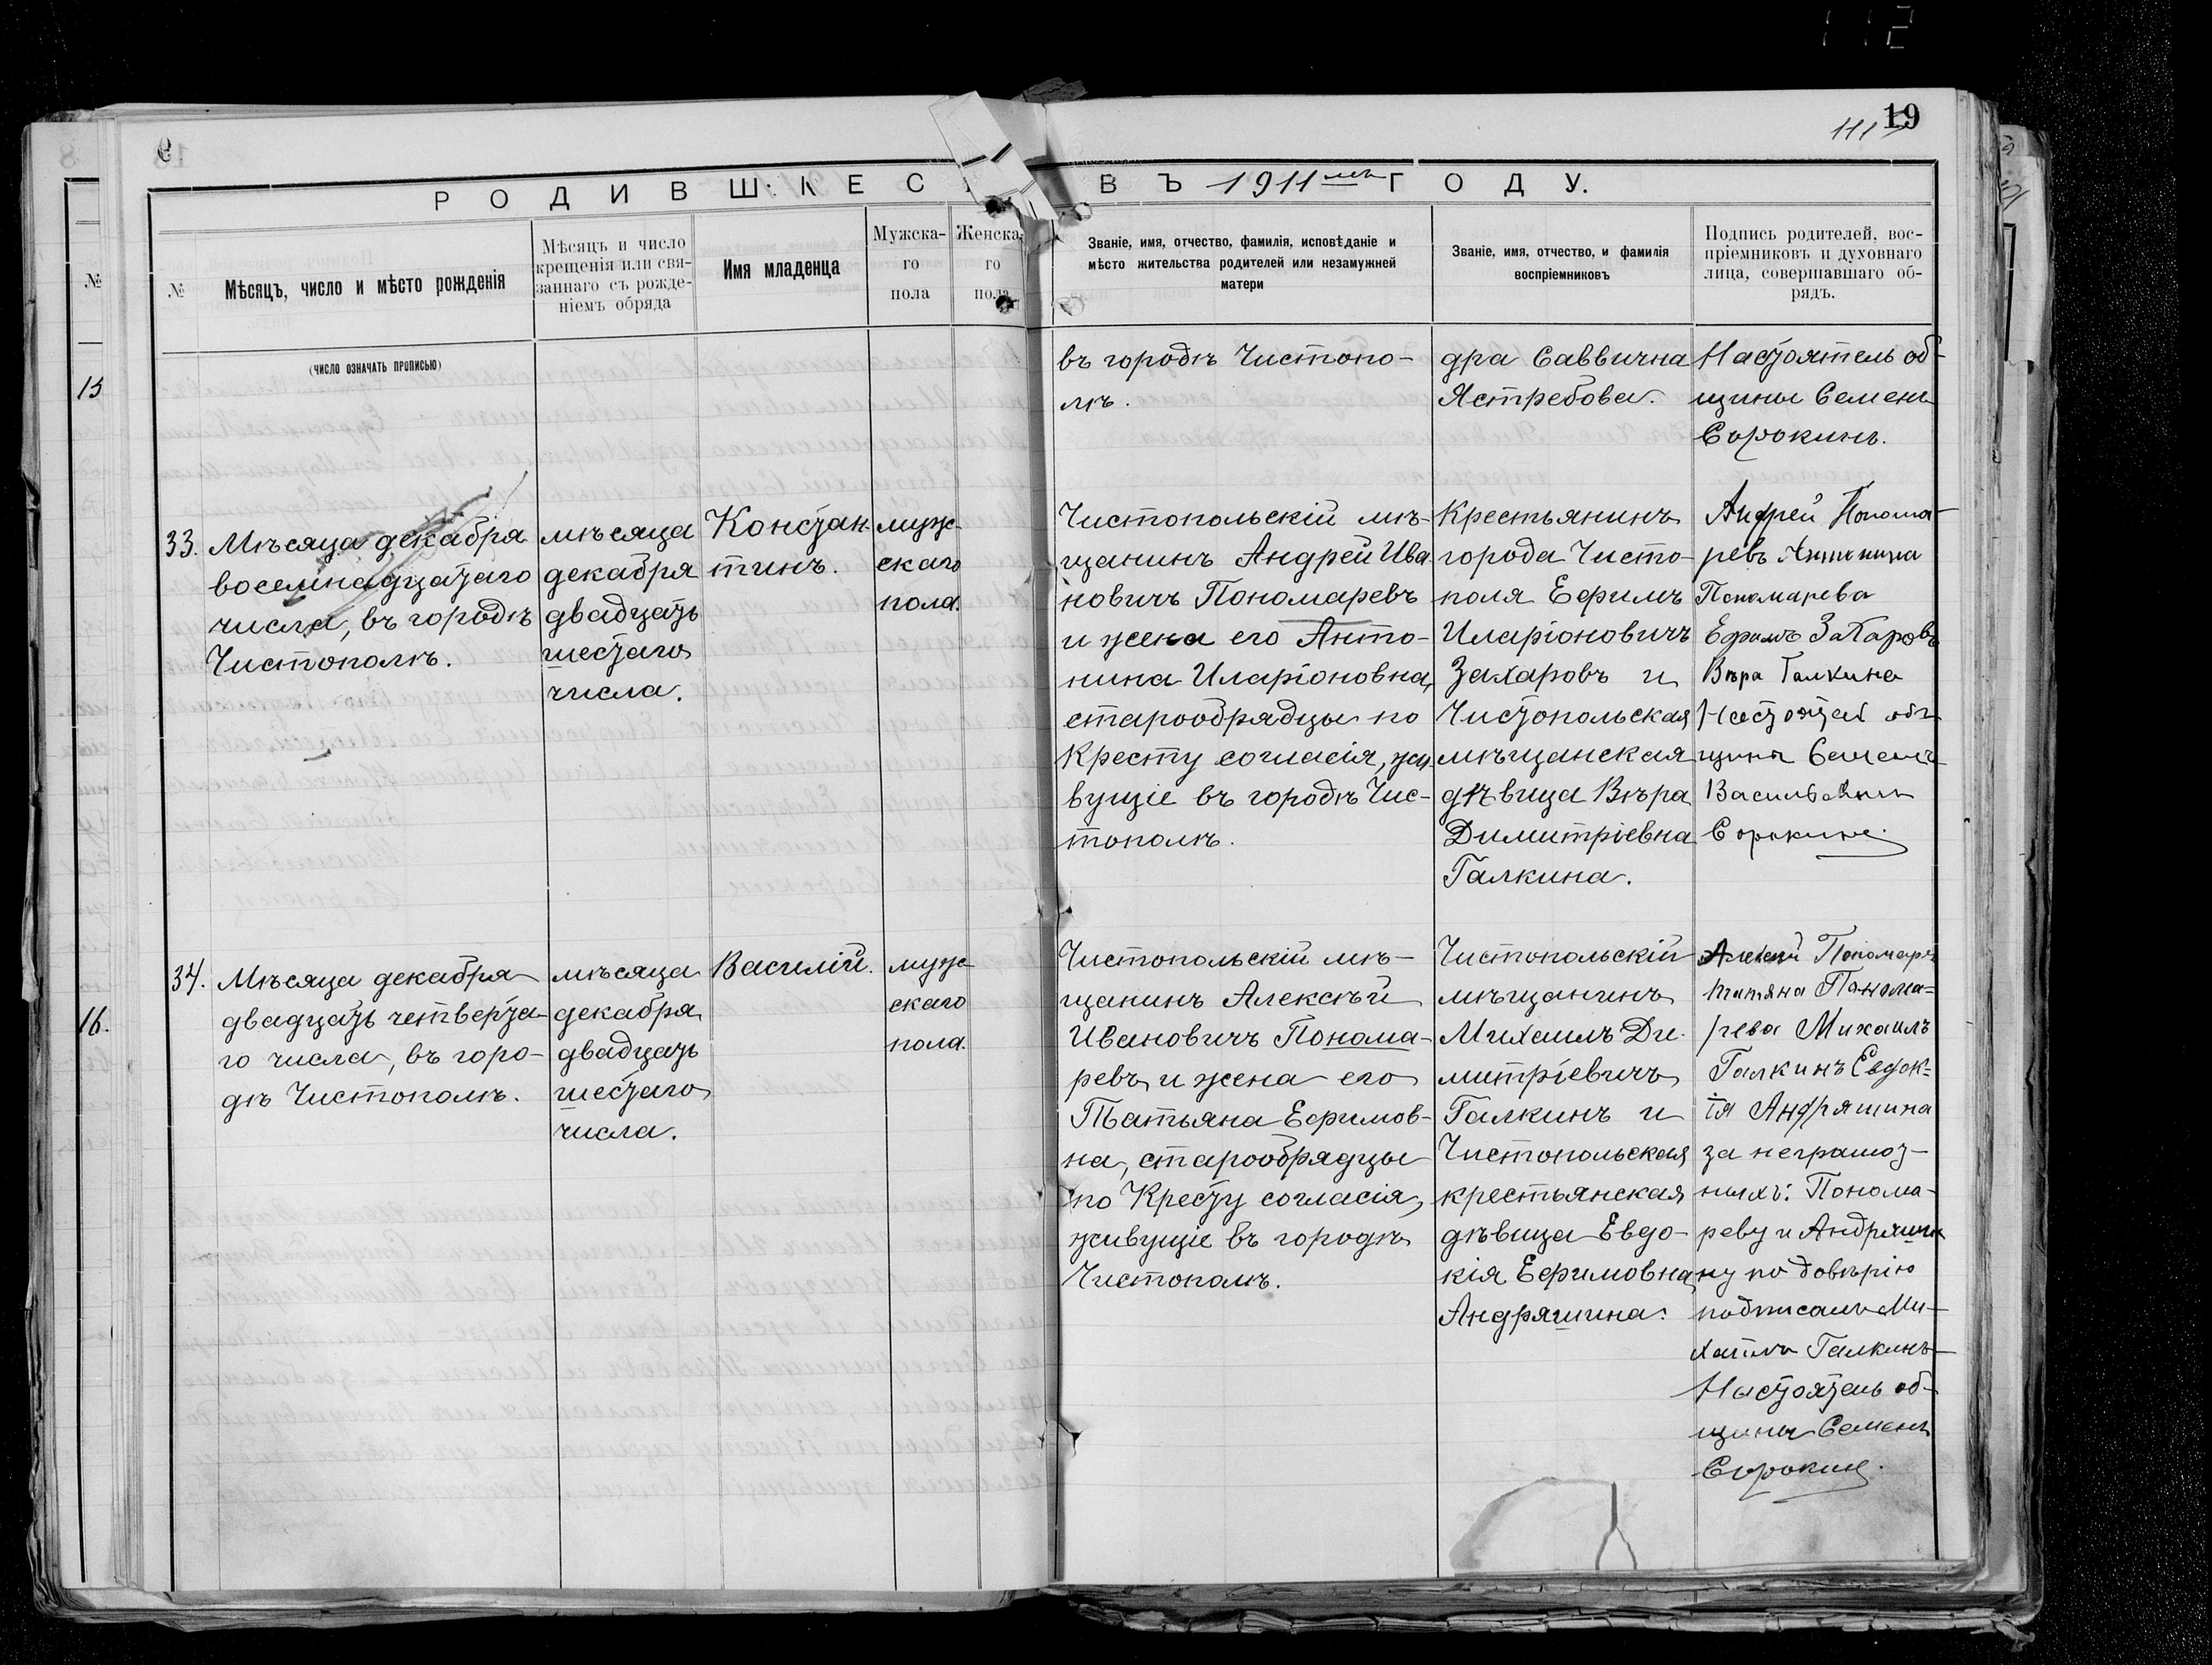 112
19
111
РОДИВШІЕСЯ ВЪ 1911мъ ГОДУ.
№
№
Мѣсяцъ, число и мѣсто рожденія
(число означать прописью)
Мѣсяцъ и число
крещенія или свя-
заннаго съ рожде-
ніемъ обряда
Имя младенца
Мужска-
го
пола
Женска
го
пола
Званіе, имя, отчество, фамилія, исповѣданіе и
мѣсто жительства родителей или незамужней
матери
Званіе, имя, отчество, и фамилія
воспріемниковъ
Подпись родителей, вос-
пріемниковъ и духовнаго
лица, совершавшаго об-
рядъ.
15
въ городѣ Чистопо-
лѣ.
дра Саввична
Ястребова.
Настоятель об-
щины Семенъ
Сорокинъ.
33.
Мѣсяца декабря
восемнадцатаго
числа, въ городѣ
Чистополѣ.
мѣсяца
декабря
двадцать
шестаго
числа.
Констан-
тинъ.
муж-
скаго
пола.
Чистопольскій мѣ-
щанинъ Андрей Ива
новичъ Пономаревъ
и жена его Анто-
нина Иларіоновна,
старообрядцы по
Кресту согласія, жи
вущіе въ городѣ Чис-
тополѣ.
Крестьянинъ
города Чисто-
поля Ефимъ
Иларіоновичъ
Захаровъ и
Чистопольская
мѣщанская
дѣвица Вѣра
Димитріевна
Галкина.
Андрей Понома-
ревъ Антонина
Пономарева
Ефимъ Захаровъ
Вѣра Галкина
Настоятель об
щины Семенъ
Васильевичъ
Сорокинъ.
16.
34.
Мѣсяца декабря
двадцать четверта-
го числа, въ горо-
дѣ Чистополѣ.
мѣсяца
декабря
двадцать
шестаго
числа.
Василій.
муж-
скаго
пола.
Чистопольскій мѣ-
щанинъ Алексѣй
Ивановичъ Понома-
ревъ и жена его
Татьяна Ефимов-
на, старообрядцы
по Кресту согласія,
живущіе въ городѣ
Чистополѣ.
Чистопольскій
мѣщанинъ
Михаилъ Ди-
митріевичъ
Галкинъ и
Чистопольская
крестьянская
дѣвица Евдо-
кія Ефимовна
Андряшина.
Алексѣй Пономаръ
татяна Панома=
рева Михаилъ
Галкинъ Евдок=
ія Андряшина
за неграмот-
ныхъ: Понома-
реву и Андряши
ну по довѣрію
подписалъ Ми-
хаилъ Галкинъ
Настоятель об-
щины Семенъ
Сорокинъ.